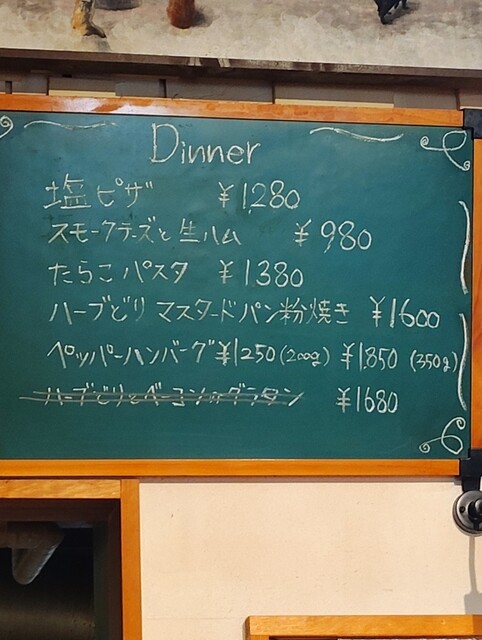 Dinner
塩ピザ ¥1,280
スモークチーズと生ハム ¥980
たらこパスタ ¥1380
ハーブどりマスタードパン粉焼き ¥1600
ペッパーハンバーグ ¥1250(200g) ¥1,850 (350g)
ハーブどりとベーコンのグラタン ¥1680